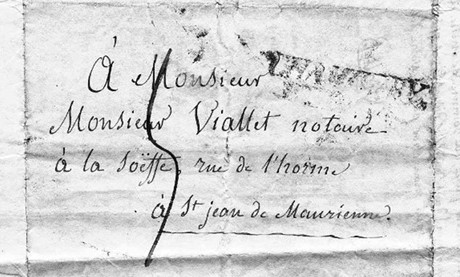 À Monsieur
CHAMBERY
Monsieur Viallet notaire
à la Soëffe, rue de l'horme
à St jean de Maurienne.